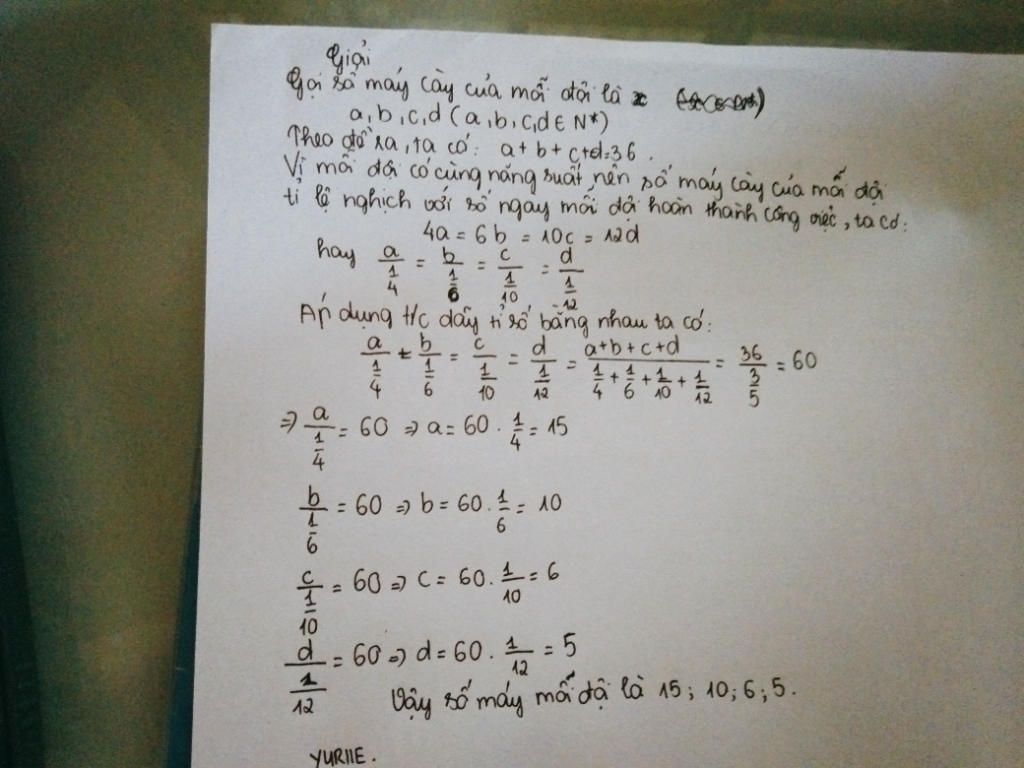 Giải
Gọi số máy cày của mỗi đội là
a, b, c, d (a, b, c, d ∈ N*)
Theo đề ra, ta có: a + b + c + d = 36.
Vì mỗi đội có cùng năng suất, nên số máy cày của mỗi đội
tỉ lệ nghịch với số ngay mỗi đội hoàn thành công việc, ta có:
4a = 6b = 10c = 12d
hay a/(1/4) = b/(1/6) = c/(1/10) = d/(1/12)
Áp dụng t/c dãy tỉ số bằng nhau ta có:
a/(1/4) = b/(1/6) = c/(1/10) = d/(1/12) = (a+b+c+d)/(1/4 + 1/6 + 1/10 + 1/12) = 36/(3/5) = 60
⇒ a/(1/4) = 60 ⇒ a = 60 . 1/4 = 15
b/(1/6) = 60 ⇒ b = 60 . 1/6 = 10
c/(1/10) = 60 ⇒ c = 60 . 1/10 = 6
d/(1/12) = 60 ⇒ d = 60 . 1/12 = 5
Vậy số máy mỗi đội là 15; 10; 6; 5.
YURIIE.